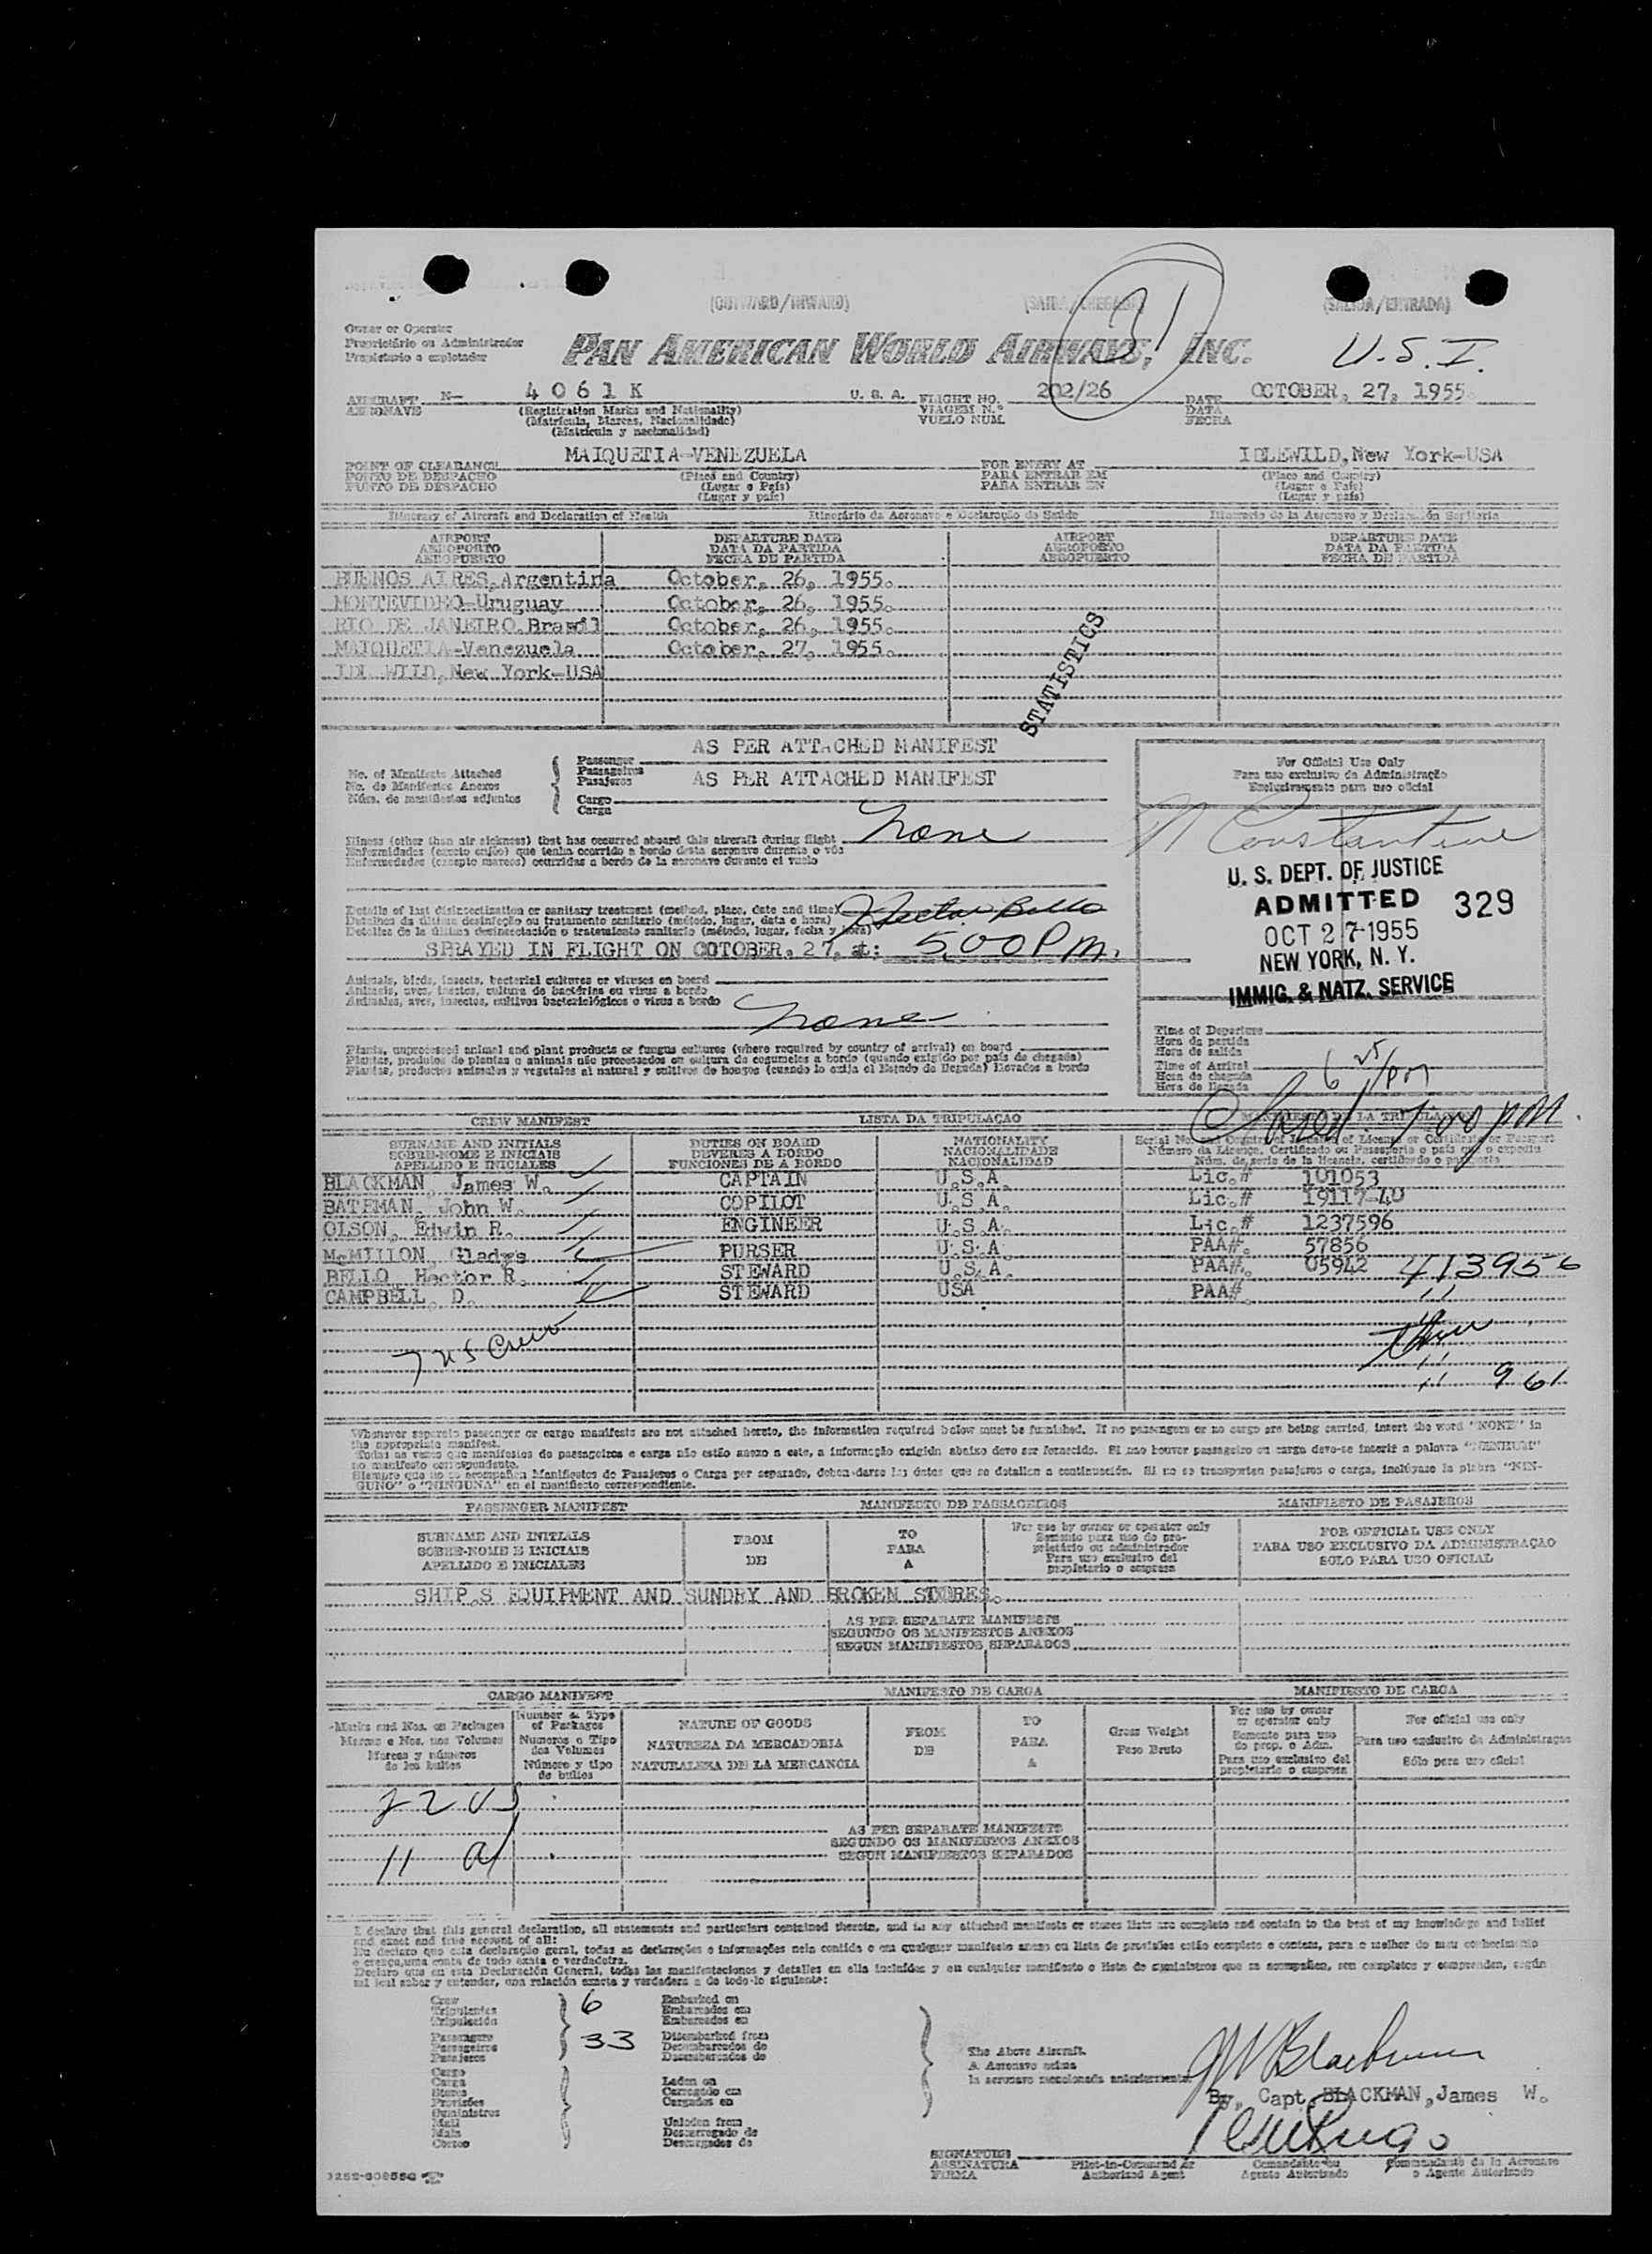 (OUTWARD/INWARD) (SAIDA/CHEGADA) (SALIDA/ENTRADA)
31
Owner or Operator
Proprietário ou Administrador
Propietario o explotador
PAN AMERICAN WORLD AIRWAYS, INC.
U.S.I.
AIRCRAFT N- 4 0 6 1 K U. S. A. FLIGHT NO. 202/26 DATE OCTOBER, 27, 1955.
AERONAVE (Registration Marks and Nationality) VIAGEM N.º DATA
(Matrícula, Marcas, Nacionalidade) VUELO NUM. FECHA
(Matrícula y nacionalidad)
MAIQUETIA-VENEZUELA IDLEWILD, New York-USA
POINT OF CLEARANCE FOR ENTRY AT
PONTO DE DESPACHO (Place and Country) PARA ENTRAR EM (Place and Country)
PUNTO DE DESPACHO (Lugar e País) PARA ENTRAR EN (Lugar e País)
(Lugar y país) (Lugar y país)
Itinerary of Aircraft and Declaration of Health Itinerário da Aeronave e Declaração de Saúde Itinerario de la Aeronave y Declaración Sanitaria
AIRPORT DEPARTURE DATE AIRPORT DEPARTURE DATE
AEROPORTO DATA DA PARTIDA AEROPORTO DATA DA PARTIDA
AEROPUERTO FECHA DE PARTIDA AEROPUERTO FECHA DE PARTIDA
BUENOS AIRES, Argentina October, 26, 1955.
MONTEVIDEO-Uruguay October, 26, 1955.
RIO DE JANEIRO, Brasil October, 26, 1955.
MAIQUETIA-Venezuela October, 27, 1955.
WILD, New York-USA
STATISTICS
AS PER ATTACHED MANIFEST
No. of Manifests Attached Passenger
No. de Manifestos Anexos Passageiros
Núm. de manifiestos adjuntos Pasajeros AS PER ATTACHED MANIFEST
Cargo
Carga
For Official Use Only
Para uso exclusivo da Administração
Exclusivamente para uso oficial
Illness (other than air sickness) that has occurred aboard this aircraft during flight None
Enfermidades (exceto enjôo) que tenha ocorrido a bordo desta aeronave durante o vôo
Enfermedades (excepto mareos) ocurridas a bordo de la aeronave durante el vuelo
N Constantine
U. S. DEPT. OF JUSTICE
ADMITTED 329
OCT 27 1955
NEW YORK, N. Y.
IMMIG. & NATZ. SERVICE
Details of last disinsectization or sanitary treatment (method, place, date and time) Hector Bello
Detalhes da última desinfeção ou tratamento sanitário (método, lugar, data e hora)
Detalles de la última desinsectación o tratamiento sanitario (método, lugar, fecha y hora)
SPRAYED IN FLIGHT ON OCTOBER, 27, at: 5,00 P m.
Animals, birds, insects, bacterial cultures or viruses on board
Animais, aves, insetos, cultura de bactérias ou virus a bordo
Animales, aves, insectos, cultivos bacteriológicos o virus a bordo
None
Plants, unprocessed animal and plant products or fungus cultures (where required by country of arrival) on board
Plantas, produtos de plantas e animais não processados ou cultura de cogumelos a bordo (quando exigido por país de chegada)
Plantas, productos animales y vegetales al natural y cultivos de hongos (cuando lo exija el Estado de llegada) llevados a bordo
Time of Departure
Hora da partida
Hora de salida
Time of Arrival 6 25/pm
Hora da chegada
Hora de llegada
7 00 pm.
CREW MANIFEST LISTA DA TRIPULAÇAO MANIFIESTO DE LA TRIPULACION
SURNAME AND INITIALS DUTIES ON BOARD NATIONALITY Serial No. and Country of Issuance of License or Certificate or Passport
SOBRE-NOME E INICIAIS DEVERES A BORDO NACIONALIDADE Número da Licença, Certificado ou Passaporte e país que o expediu
APELLIDO E INICIALES FUNCIONES DE A BORDO NACIONALIDAD Núm. de serie de la licencia, certificado o pasaporte
BLACKMAN, James W. CAPTAIN U.S.A. Lic.# 101053
BATEMAN, John W. COPILOT U.S.A. Lic.# 19117-40
OLSON, Edwin R. ENGINEER U.S.A. Lic.# 1237596
McMILLON, Gladys PURSER U.S.A. PAA#. 57856
BELLO, Hector R. STEWARD U.S.A. PAA#. 05942 413956
CAMPBELL, D. STEWARD USA PAA#.
7 US Crew
961
Whenever separate passenger or cargo manifests are not attached hereto, the information required below must be furnished. If no passengers or no cargo are being carried, insert the word "NONE" in
the appropriate manifest.
Todas as vezes que manifestos de passageiros e carga não estão anexo a este, a informação exigida abaixo deve ser fornecido. Si nao houver passageiro ou carga deve-se inserir a palavra "NENHUM"
no manifesto correspondente.
Siempre que no se acompañen Manifiestos de Pasajeros o Carga por separado, deben darse los datos que se detallan a continuación. Si no se transporten pasajeros o carga, inclúyase la plabra "NIN-
GUNO" o "NINGUNA" en el manifiesto correspondiente.
PASSENGER MANIFEST MANIFESTO DE PASSAGEIROS MANIFIESTO DE PASAJEROS
SURNAME AND INITIALS FROM TO For use by owner or operator only FOR OFFICIAL USE ONLY
SOBRE-NOME E INICIAIS DE PARA Somente para uso do proprietário ou administrador PARA USO EXCLUSIVO DA ADMINISTRAÇAO
APELLIDO E INICIALES A Para uso exclusivo del propietario o empresa SOLO PARA USO OFICIAL
SHIP.S EQUIPMENT AND SUNDRY AND BROKEN STORES.
AS PER SEPARATE MANIFESTS
SEGUNDO OS MANIFESTOS ANEXOS
SEGUN MANIFIESTOS SEPARADOS
CARGO MANIFEST MANIFESTO DE CARGA MANIFIESTO DE CARGA
Marks and Nos. on Packages Number & Type of Packages NATURE OF GOODS FROM TO Gross Weight For use by owner or operator only For official use only
Marcas e Nos. nos Volumes Numeros e Tipo dos Volumes NATUREZA DA MERCADORIA DE PARA Peso Bruto Somente para uso do prop. o Adm. Para uso exclusivo da Administraçao
Marcas y números de los bultos Número y tipo de bultos NATURALEZA DE LA MERCANCIA A Para uso exclusivo del propietario o empresa Sólo para uso oficial
22 US
AS PER SEPARATE MANIFESTS
SEGUNDO OS MANIFESTOS ANEXOS
11 a SEGUN MANIFIESTOS SEPARADOS
I declare that this general declaration, all statements and particulars contained therein, and in any attached manifests or stores lists are complete and contain to the best of my knowledge and belief
and exact and true account of all:
Eu declaro que esta declaração geral, todas as declarações e informações nela contida e em qualquer manifesto anexo ou lista de provisões estão completo e contem, para o melhor do meu conhecimento
e crença, uma conta de todo exata e verdadeira.
Declaro que en esta Declaración General, todas las manifestaciones y detalles en ella incluídos y en cualquier manifiesto o lista de suministros que se acompañen, son completos y comprenden, según
mi leal saber y entender, una relación exacta y verdadera a de todo lo siguiente:
Crew 6 Embarked on
Tripulantes Embarcados em
Tripulación Embarcados en
Passengers 33 Disembarked from
Passageiros Desembarcados de
Pasajeros Desembarcados de
The Above Aircraft.
A Aeronave acima
la aeronave mencionada anteriormente
JW Blackman
Cargo
Carga Laden on
Stores Carregado em
Provisões Cargados en
Suministros
By, Capt. BLACKMAN, James W.
Mail Unladen from
Mala Descarregado de
Correo Descargados de
SIGNATURE
ASSINATURA Pilot-in-Command or Comandante ou Comandante de la Aeronave
FIRMA Authorized Agent Agente Autorizado o Agente Autorizado